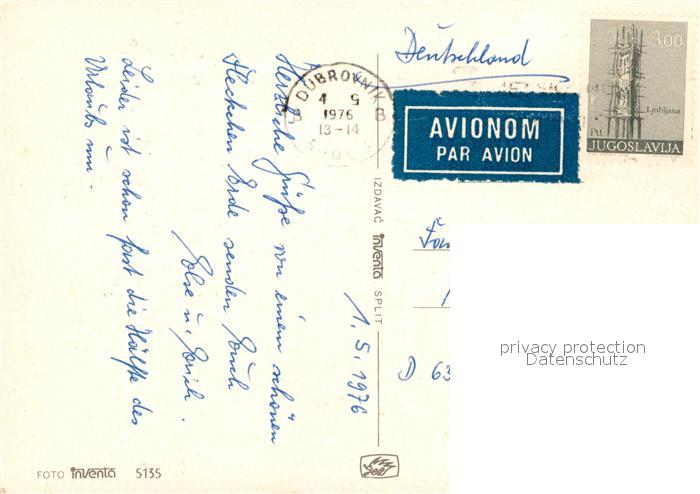 Deutschland
3.00
Ljubljana
Ptt
JUGOSLAVIJA
DUBROVNIK
4 5
1976
13-14
B B
AVIONOM
PAR AVION
Herzliche Grüße von einem schönen
Fleckchen Erde senden Euch
Else u. Erich.
Leider ist schon fast die Hälfte des
Urlaubs um.
1.5.1976
IZDAVAČ inventa SPLIT
Fam
D 63
privacy protection
Datenschutz
FOTO inventa 5135